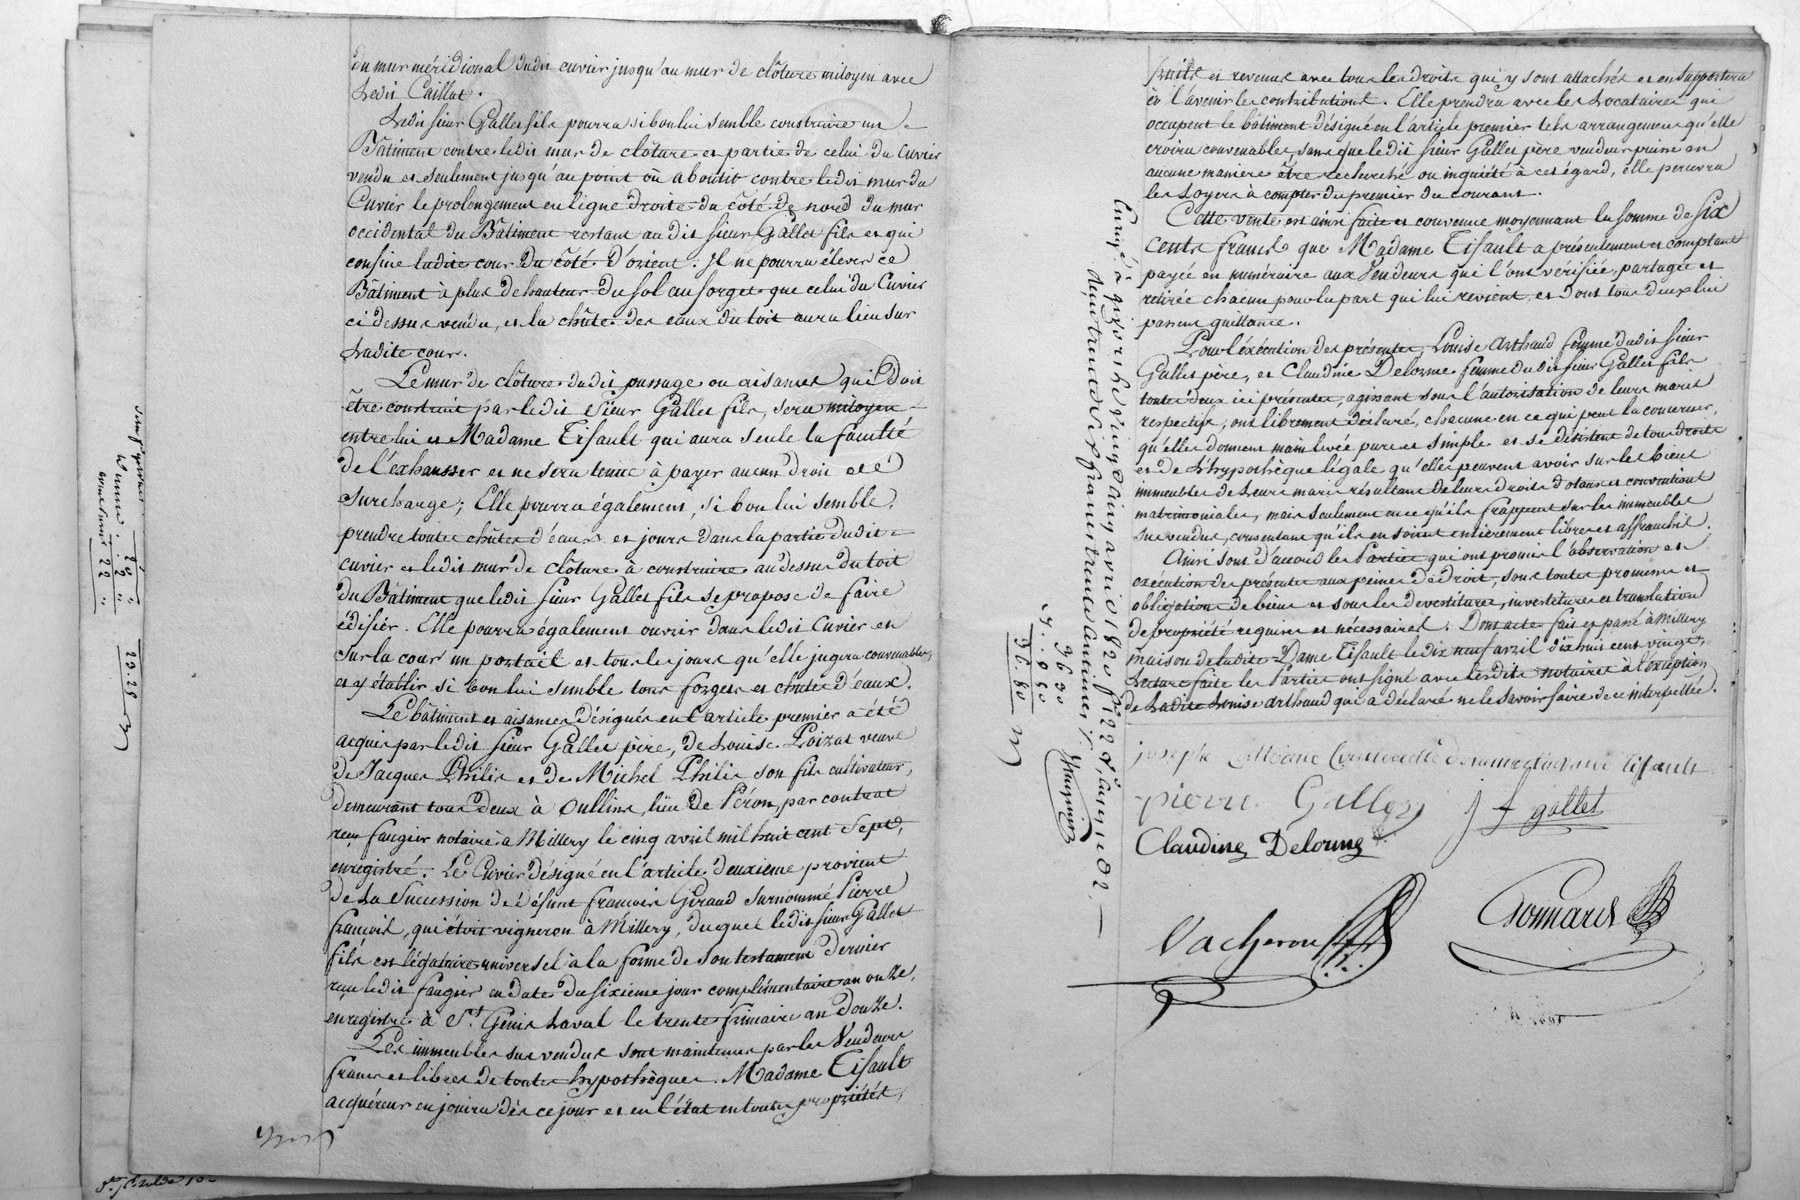 du mur méridional dudit cuvier jusqu'au mur de clôture mitoyen avec
Ledit Caillat.
Ledit sieur Gallet fils pourra si bon lui semble construire un
Bâtiment contre ledit mur de clôture et partie de celui du Cuvier
vendu et seulement jusqu'au point où aboutit contre ledit mur du
Cuvier le prolongement en ligne droite du côté de nord du mur
occidental du Bâtiment restant audit sieur Gallet fils et qui
confine ladite cour du côté d'orient. Il ne pourra élever ce
Bâtiment à plus de hauteur du sol au forget que celui du Cuvier
ci dessus vendu, et la chûte des eaux du toit aura lieu sur
Ladite cour.
Le mur de clôture dudit passage ou aisances qui doit
être construit par ledit Sieur Gallet fils, sera mitoyen
entre lui et Madame Tifault qui aura seule la faculté
de l'exhausser et ne sera tenue à payer aucun droit de
surcharge; Elle pourra également, si bon lui semble,
prendre toutes chûtes d'eaux et jours dans la partie dudit
cuvier et ledit mur de clôture à construire au dessus du toit
du Bâtiment que ledit sieur Gallet fils se propose de faire
édifier. Elle pourra également ouvrir dans ledit Cuvier et
sur la cour un portail et tous les jours qu'elle jugera convenables,
et y établir si bon lui semble tous forgets et chutes d'eaux.
Le bâtiment et aisances désignés en l'article premier a été
acquis par ledit sieur Gallet père, de Louise Loizat veuve
de Jacques Philis et de Michel Philis son fils cultivateur,
demeurant tous deux à Oullins, lieu de Péron, par contrat
reçu faugier notaire à Millery le cinq avril mil huit cent sept,
enregistré. Le Cuvier désigné en l'article deuxieme provient
de La Succession de défunt françois Giraud surnommé Pierre
françois, qui étoit vigneron à Millery, duquel ledit sieur Gallet
fils est légataire universel à la forme de son testament dernier
reçu ledit faugier en date du sixieme jour complémentaire an onze,
enregistré à St. Genis Laval le trente frimaire an douze.
Les immeubles sus vendus sont maintenus par les Vendeurs
francs et libres de toutes hypothèques. Madame Tifault
acquéreur en jouira dès ce jour et en l'état en toutes propriétés,
fruits et revenus avec tous les droits qui y sont attachés et en supportera
à l'avenir les contributions. Elle prendra avec les Locataires qui
occupent le bâtiment désigné en l'article premier tels arrangemens qu'elle
croira convenables, sans que ledit sieur Gallet père vendeur puisse en
aucune maniere être recherché ou inquiété à cet égard, elle percevra
les Loyers à compter du premier du courant.
Cette vente est ainsi faite et convenue moyennant la somme de six
cents francs que Madame Tifault a présentement et comptant
payée en numéraire aux Vendeurs qui l'ont vérifiée, partagée et
retirée chacun pour la part qui lui revient, et dont tous deux lui
passent quittance.
Pour l'éxécution des présentes, Louise Arthaud femme dudit sieur
Gallet père, et Claudine Delorme femme dudit sieur Gallet fils
toutes deux ici présentes, agissant sous l'autorisation de leurs maris
respectifs, ont librement déclaré, chacune en ce qui peut la concerner,
qu'elles donnent main levée pure et simple et se désistent de tous droits
et de L'hypothèque légale qu'elles peuvent avoir sur les biens
immeubles de Leurs maris résultant de leurs droits dotaux et conventions
matrimoniales, mais seulement en ce qu'ils frappent sur les immeubles
sus vendus, consentant qu'ils en soient entièrement libres et affranchis.
Ainsi sont d'accord les Parties qui ont promis l'observation et
exécution des présentes aux peines de droit, sous toutes promesses et
obligation de biens et sous les devestitures, investitures et translation
de propriété requises et nécessaires. Dont acte fait et passé à Millery
maison de ladite Dame Tifault le dix neuf avril dix huit cent vingt,
Lecture faite les Parties ont signé avec lesdits notaires à l'exception
de Ladite Louise Arthaud qui a déclaré ne le savoir faire de ce interpellée.
pierre Gallet
j f gallet
Claudine Delorme
Vacheron
Enreg.é à givors le vingt cinq avril 1820 f° 122
reçu trente six francs trente centimes
36. 30
36. 60
29. 29